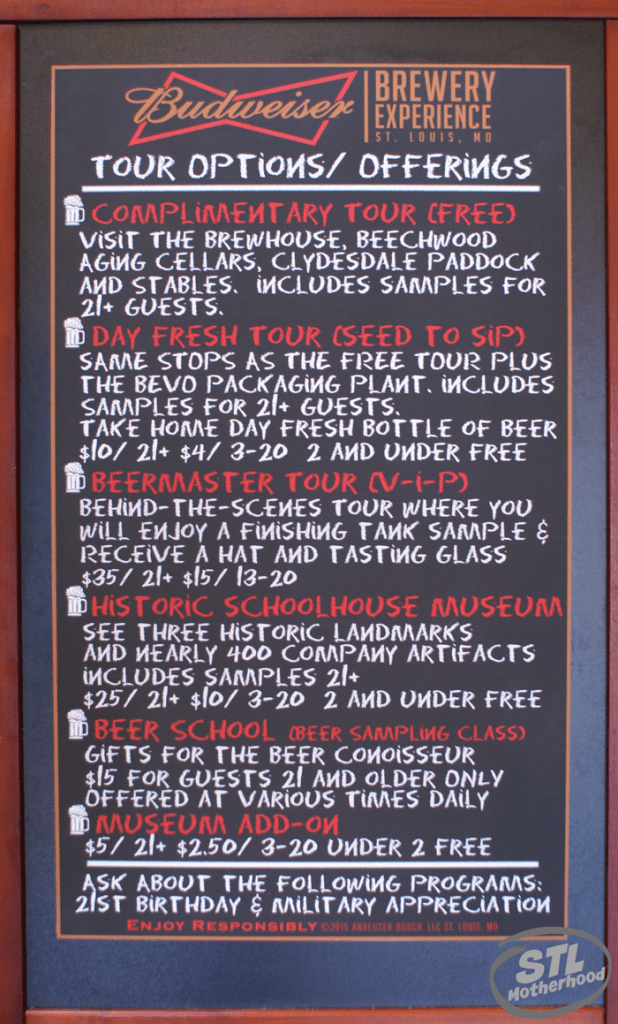 Budweiser
BREWERY
EXPERIENCE
ST. LOUIS, MO
TOUR OPTIONS/ OFFERINGS
COMPLIMENTARY TOUR (FREE)
VISIT THE BREWHOUSE, BEECHWOOD
AGING CELLARS, CLYDESDALE PADDOCK
AND STABLES. INCLUDES SAMPLES FOR
21+ GUESTS.
DAY FRESH TOUR (SEED TO SIP)
SAME STOPS AS THE FREE TOUR PLUS
THE BEVO PACKAGING PLANT. INCLUDES
SAMPLES FOR 21+ GUESTS.
TAKE HOME DAY FRESH BOTTLE OF BEER
$10/ 21+ $4/ 3-20 2 AND UNDER FREE
BEERMASTER TOUR (V-I-P)
BEHIND-THE-SCENES TOUR WHERE YOU
WILL ENJOY A FINISHING TANK SAMPLE &
RECEIVE A HAT AND TASTING GLASS
$35/ 21+ $15/ 13-20
HISTORIC SCHOOLHOUSE MUSEUM
SEE THREE HISTORIC LANDMARKS
AND NEARLY 400 COMPANY ARTIFACTS
INCLUDES SAMPLES 21+
$25/ 21+ $10/ 3-20 2 AND UNDER FREE
BEER SCHOOL (BEER SAMPLING CLASS)
GIFTS FOR THE BEER CONOISSEUR
$15 FOR GUESTS 21 AND OLDER ONLY
OFFERED AT VARIOUS TIMES DAILY
MUSEUM ADD-ON
$5/ 21+ $2.50/ 3-20 UNDER 2 FREE
ASK ABOUT THE FOLLOWING PROGRAMS:
21ST BIRTHDAY & MILITARY APPRECIATION
ENJOY RESPONSIBLY ©2015 ANHEUSER-BUSCH, LLC ST. LOUIS, MO
STL
Motherhood